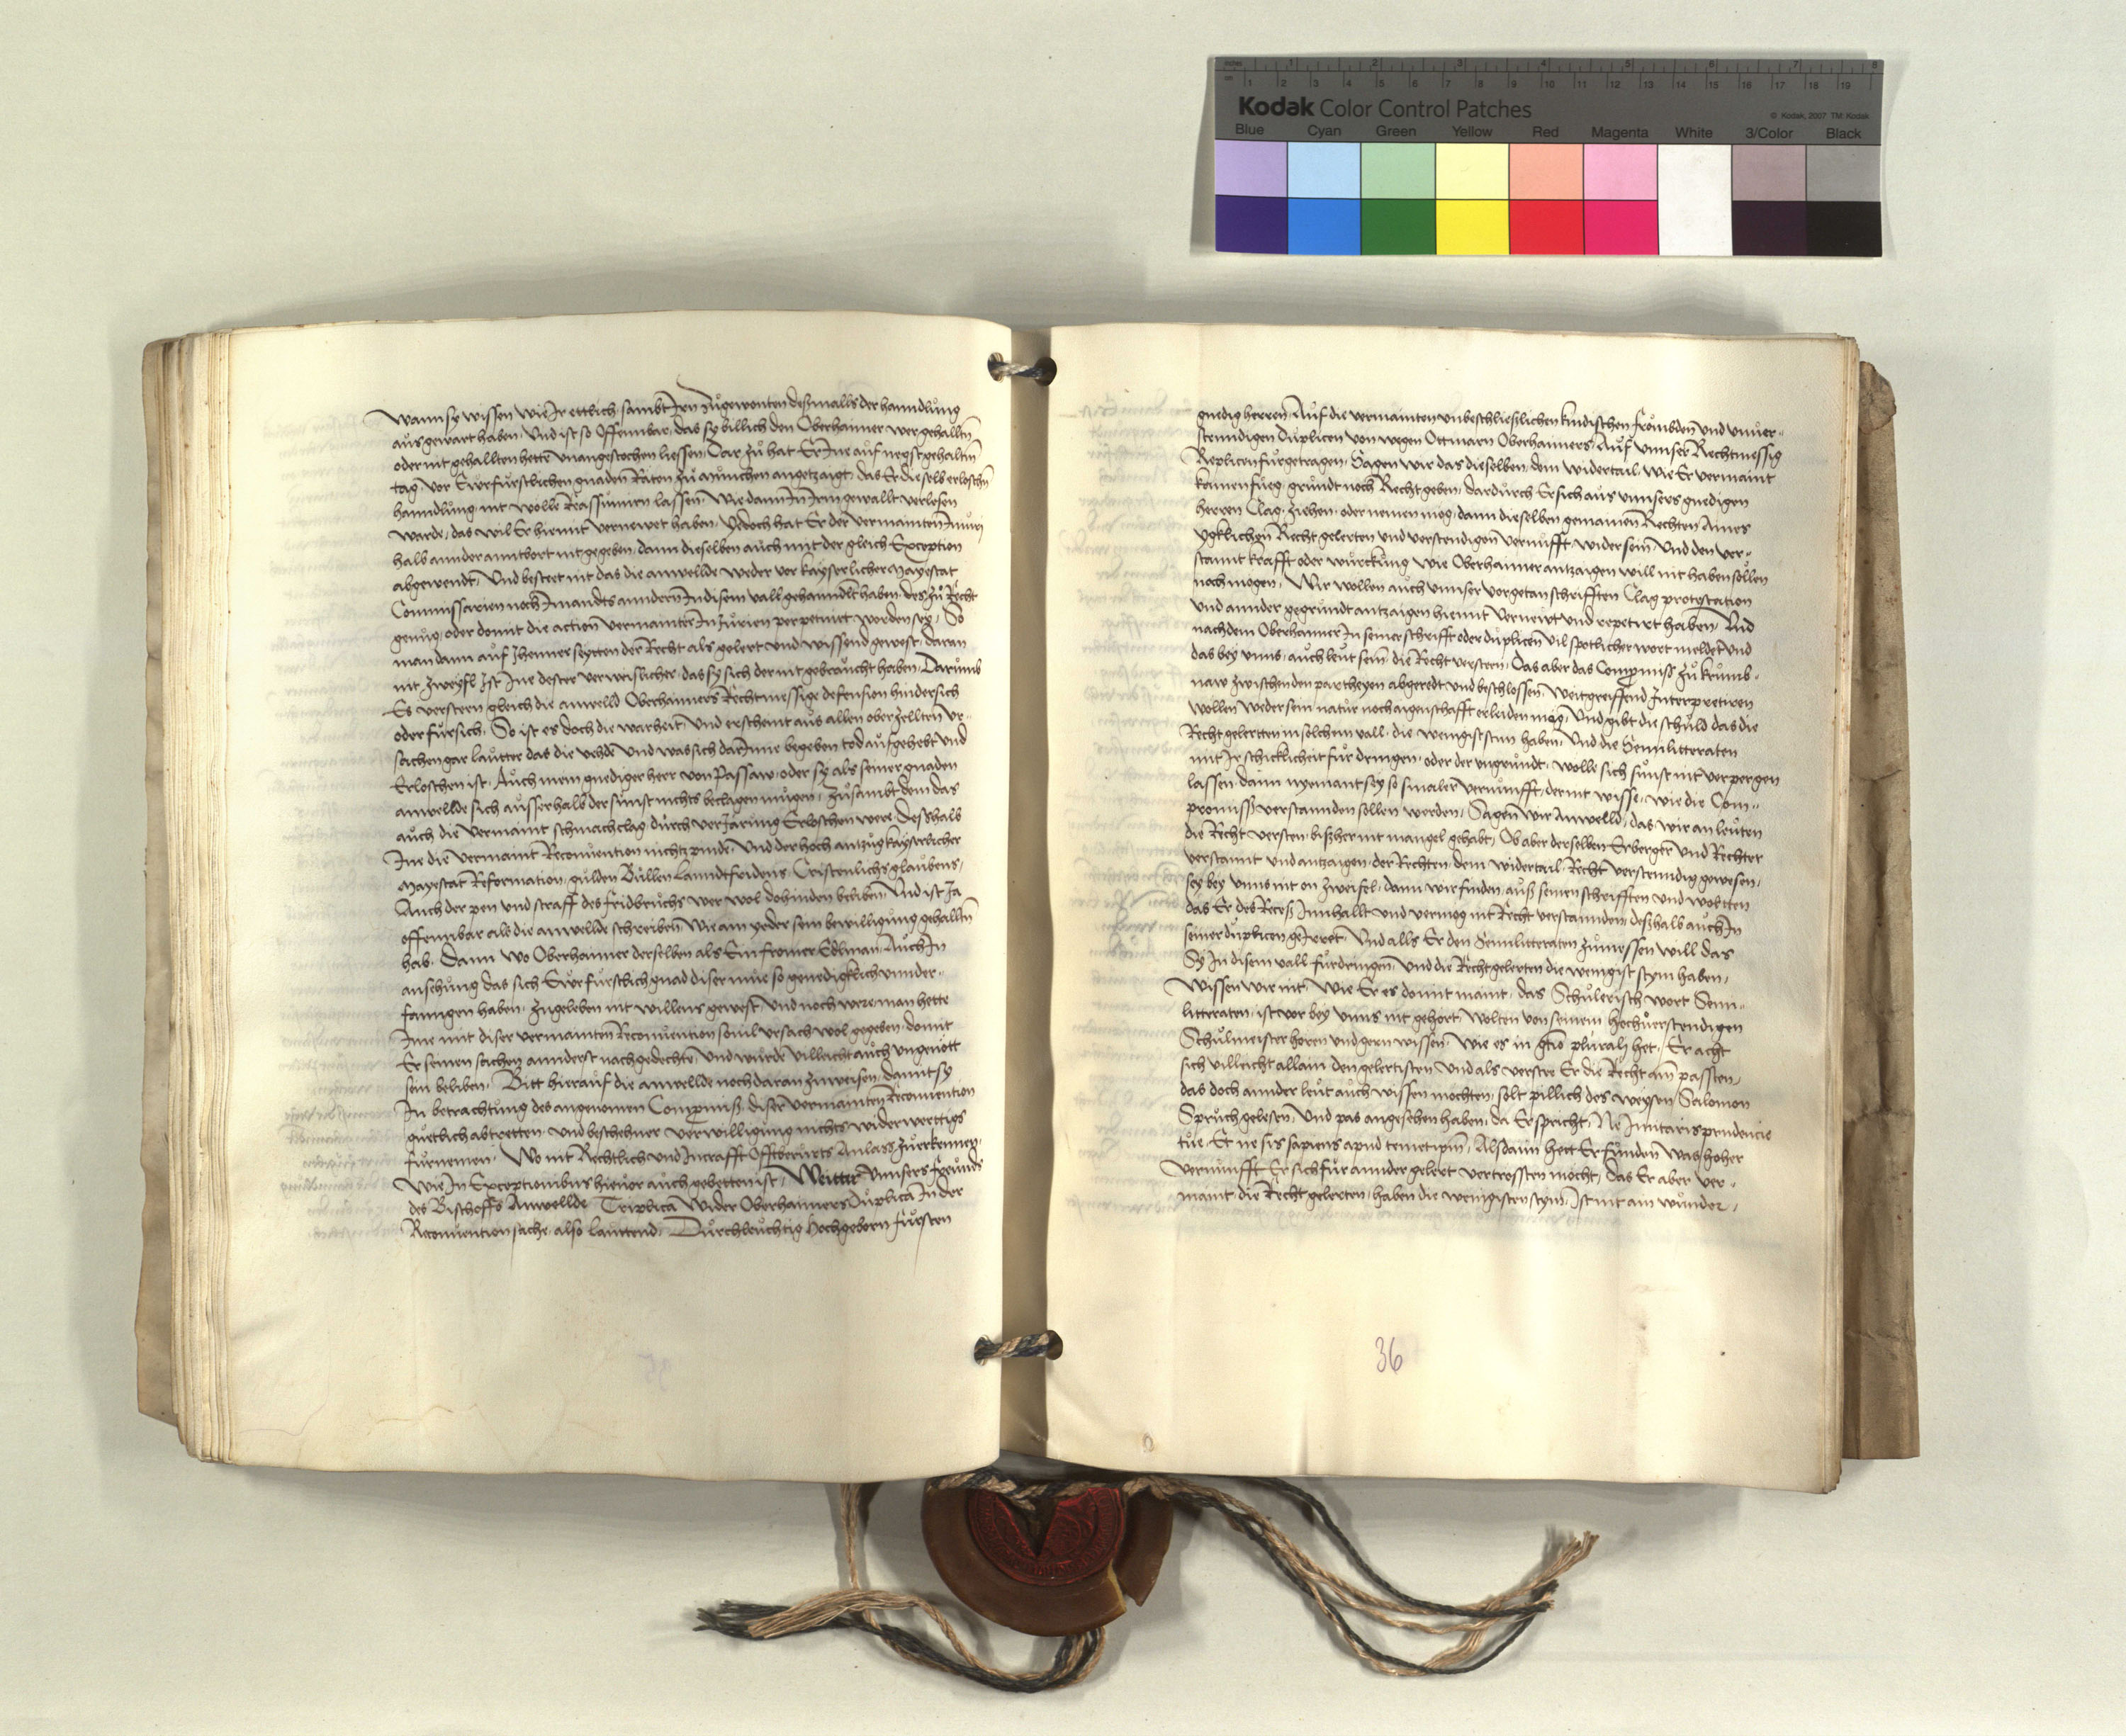 inches 1 2 3 4 5 6 7 8
cm 1 2 3 4 5 6 7 8 9 10 11 12 13 14 15 16 17 18 19
Kodak Color Control Patches
© Kodak, 2007 TM: Kodak
Blue Cyan Green Yellow Red Magenta White 3/Color Black
wann sy wissen wie Ir ettlich sambt Iren zůgewonten deßmalls der hanndlůng
aůsgewart haben, Und ist so Offennbar, das sy billich den Oberhaimer wer gehalltn̄
oder nit gehallten hettn̄ unangestochen liessen, Dar zů hat Er Ine auf negst gehaltn̄
tag, vor Ewr fürstlichen gnadn̄ Räten zů München angetzaigt, das Er die selb erloschn̄
hanndlůng, nit wolle Reassůmirn lassen̄, Wie dann In Irm gewallt verlesen
warde, das wil Er hiemit vernewet haben, Yedoch hat Er der vermainten Iniurj
halb annder anntbort nit gegeben, dann dieselben aůch mit der gleich Exception
abgewendt, Und besteet nit das die anwellde weder vor kayserlicher Mayestat
Commissarien noch Imandts anndern̄ In disem vall gehanndlt haben, des zů Recht
genůg, oder domit die action̄ vermainter Inzůrien perpetuirt worden sey, So
man dann aůf Jhenner seytten der Recht als gelert und wissend gewest, daran
nit zweyfl, Ist Ine dester verweislicher, das sy sich der nit gebraůcht haben, Darůmb
Es versteen gleich die anwelld Oberhaimers Rechtmessige defension hindersich
oder fürsich, So ist es doch die warheit, Und erscheint aus allen oberzellten Ur-
sachen gar laůtter das die vehde und was sich darInne begeben tod aůfgehebt und
Erloschen ist, Aůch mein gnediger herr von Passaw, oder sy als seiner gnaden
anwellde sich aůsserhalb der sůnst nichts beclagen můgen, Zůsambt dem das
aůch die vermaint schmachclag důrch verJarůng Erloschen were, Deßhalb
Ine die vermaint Reconuention nichtz pindt, Und der hoch antzůg kayserlicher
Mayestat Reformation, gůlden Bůllen Lanndtfridens, Cristenlichs glaůbens,
Aůch der pen und straff des fridbrůchs wer wol dohinden beliben̄, Und ist Ja
offennbar als die anwellde schreiben̄ Wie ain yeder sein bewilligůng gehalltn̄
hab, Dann wo Oberhaimer derselben als Ein fromer Edlman, Aůch In
ansehůng das sich Ewr fürstlich gnad diser müe so genedigklich unnder-
fanngen haben, zůgeleben nit willens gewest, Und noch were, man hette
Ime mit diser vermainten̄ Reconuention souil Ursach wol gegeben, domit
Er seinen sachen annderst nachgedechte, Und wůrde villeicht aůch ungenött
sein beliben, Bitt hieraůf die anwellde noch daran zůweisen, damit sy
In betrachtůng des angenomen Compromiß, diser vermainten Reconuention
gůetlich abtretten, und beschehner verwilligůng nichts widerwerttigs
fürnemen, Wo nit Rechtlich und Incrafft Offtberürts Anlass zůerkennen,
Wie In Exceptionibus hieuor aůch gebetten ist, Weitter Unnsers freůnds
des Bischoffs Anwellde Triplica Wider Oberhaimers Důplica In der
Reconůention sache, also lauttend, Důrchleůchtig Hochgeborn Fürsten
gnedig herren, Aůf die vermainten unbeschließlichen kindischen frömbden̄ und unuer-
stenndigen Důplicen von wegen Ottmarn Oberhaimers Aůf unnser Rechtmessig
Replicen fürgetragen, Sagen wir das dieselben, dem widertail, wie Er vermaint
kainen fůeg, gründt noch Recht geben, dardůrch Er sich aůs unnsers gnedigen
herren Clag, ziehen, oder nemen mög, dann dieselben gemainen̄ Rechten Aines
yegklichen̄ Recht gelerten und verstendigen̄ vernůfft wider sein, Und den ver-
stannt krafft oder würckůng wie Oberhaimer antzaigen will nit haben söllen
noch mögen, Wir wollen aůch unnser vorgetan schrifften Clag protestation
und annder gegründt antzaigen hiemit vernewt und repetirt haben, Und
nachdem Oberhaimer In seiner schrifft oder důplicen vil spotlicher wort meldet und
das bey unns, aůch leůt sein, die Recht versteen, Das aber das Compromiss zů krůmb-
naw zwischen den partheyen abgeredt und beschlossen, Weitgreiffend Interpretiren
wollen weder sein natůr noch aigenschafft erleiden mög, Und gibt die schůld das die
Recht gelertten in solchem vall, die wenigist stim haben, Und die Semilitteraten
mit Ir schicklicheit für dringen, oder der ungründt, wolle sich sůnst nit verpergen
lassen, dann nyemant sey so smaler vernůnfft, der nit wisse, wie die Com-
promiss verstannden sollen werden, Sagen wir Anwelld, das wir an leůten
die Recht versten, bißher nit mangel gehabt, Ob aber derselben Erbergkeit und Rechter
verstannt und antzaigen, der Rechten, dem widertail, Recht verstenndig gewesen,
sey bey unns nit on zweifel, dann wir finden aůß seinen schrifften und wortten
das Er des Receß Innhallt und vermög nit Recht verstannden, deßhalb aůch In
seiner důplicen geIrret, Und alls Er den Semilitteraten zůmessen will das
Sy In disem vall fürdringen, Und die Rechtgelerten die wenigist stym haben,
Wissen wir nit, Wie Er es domit maint, das Schůlerisch wort Semi-
litteraten, ist vor bey unns nit gehört, Wolten von seinem hochuerstendigen
Schůlmeister hören und gern wissen, Wie es in gtio pluralj het, Er acht
sich villeicht allain den gelertisten, Und als verstee Er die Recht am passten,
das doch annder leůt aůch wissen mochten, solt pillich des weysen Salomon
Sprůch gelesen, Und pas angesehen haben, da Er spricht, Ne Innitaris prudencie
tue, Et ne sis sapiens apud temetipm̄, Alsdann hett Er fůnden̄ was hoher
vernůnfft Er sich für annder gelert vertrossten möcht, Das Er aber ver-
maint, die Recht gelerten, haben die wenigisten stym, Ist nit ain wůnder,
36